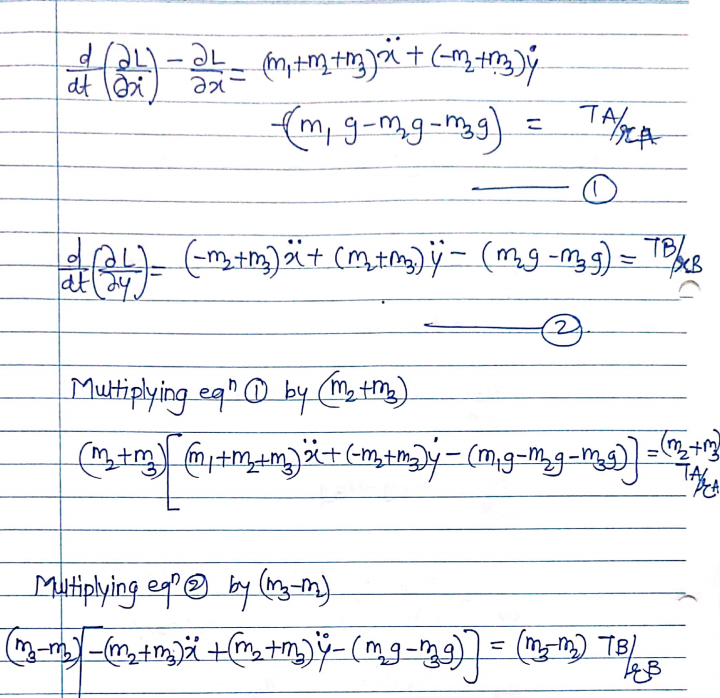 d/dt (∂L/∂ẋ) - ∂L/∂x = (m₁+m₂+m₃)ẍ + (-m₂+m₃)ẏ
-(m₁g-m₂g-m₃g) = TA/rA
①
d/dt (∂L/∂y) = (-m₂+m₃)ẍ + (m₂+m₃)ÿ - (m₂g-m₃g) = TB/rB
②
Multiplying eqⁿ ① by (m₂+m₃)
(m₂+m₃)[(m₁+m₂+m₃)ẍ+(-m₂+m₃)ẏ-(m₁g-m₂g-m₃g)] = (m₂+m₃) TA/rA
Multiplying eqⁿ ② by (m₃-m₂)
(m₃-m₂)[-(m₂+m₃)ẍ+(m₂+m₃)ÿ-(m₂g-m₃g)] = (m₃-m₂) TB/rB